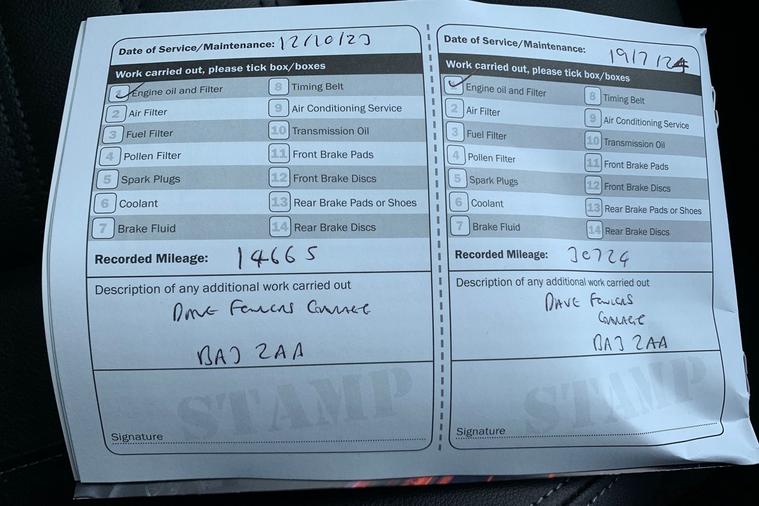 Date of Service/Maintenance: 12/10/23
Work carried out, please tick box/boxes
1 Engine oil and Filter
8 Timing Belt
2 Air Filter
9 Air Conditioning Service
3 Fuel Filter
10 Transmission Oil
4 Pollen Filter
11 Front Brake Pads
5 Spark Plugs
12 Front Brake Discs
6 Coolant
13 Rear Brake Pads or Shoes
7 Brake Fluid
14 Rear Brake Discs
Recorded Mileage: 14665
Description of any additional work carried out
DAVE FOWLERS GARAGE
BA3 2AA
STAMP
Signature
Date of Service/Maintenance: 19/7/24
Work carried out, please tick box/boxes
Engine oil and Filter
8 Timing Belt
2 Air Filter
9 Air Conditioning Service
3 Fuel Filter
10 Transmission Oil
4 Pollen Filter
11 Front Brake Pads
5 Spark Plugs
12 Front Brake Discs
6 Coolant
13 Rear Brake Pads or Shoes
7 Brake Fluid
14 Rear Brake Discs
Recorded Mileage: 30724
Description of any additional work carried out
DAVE FOWLERS
GARAGE
BA3 2AA
STAMP
Signature